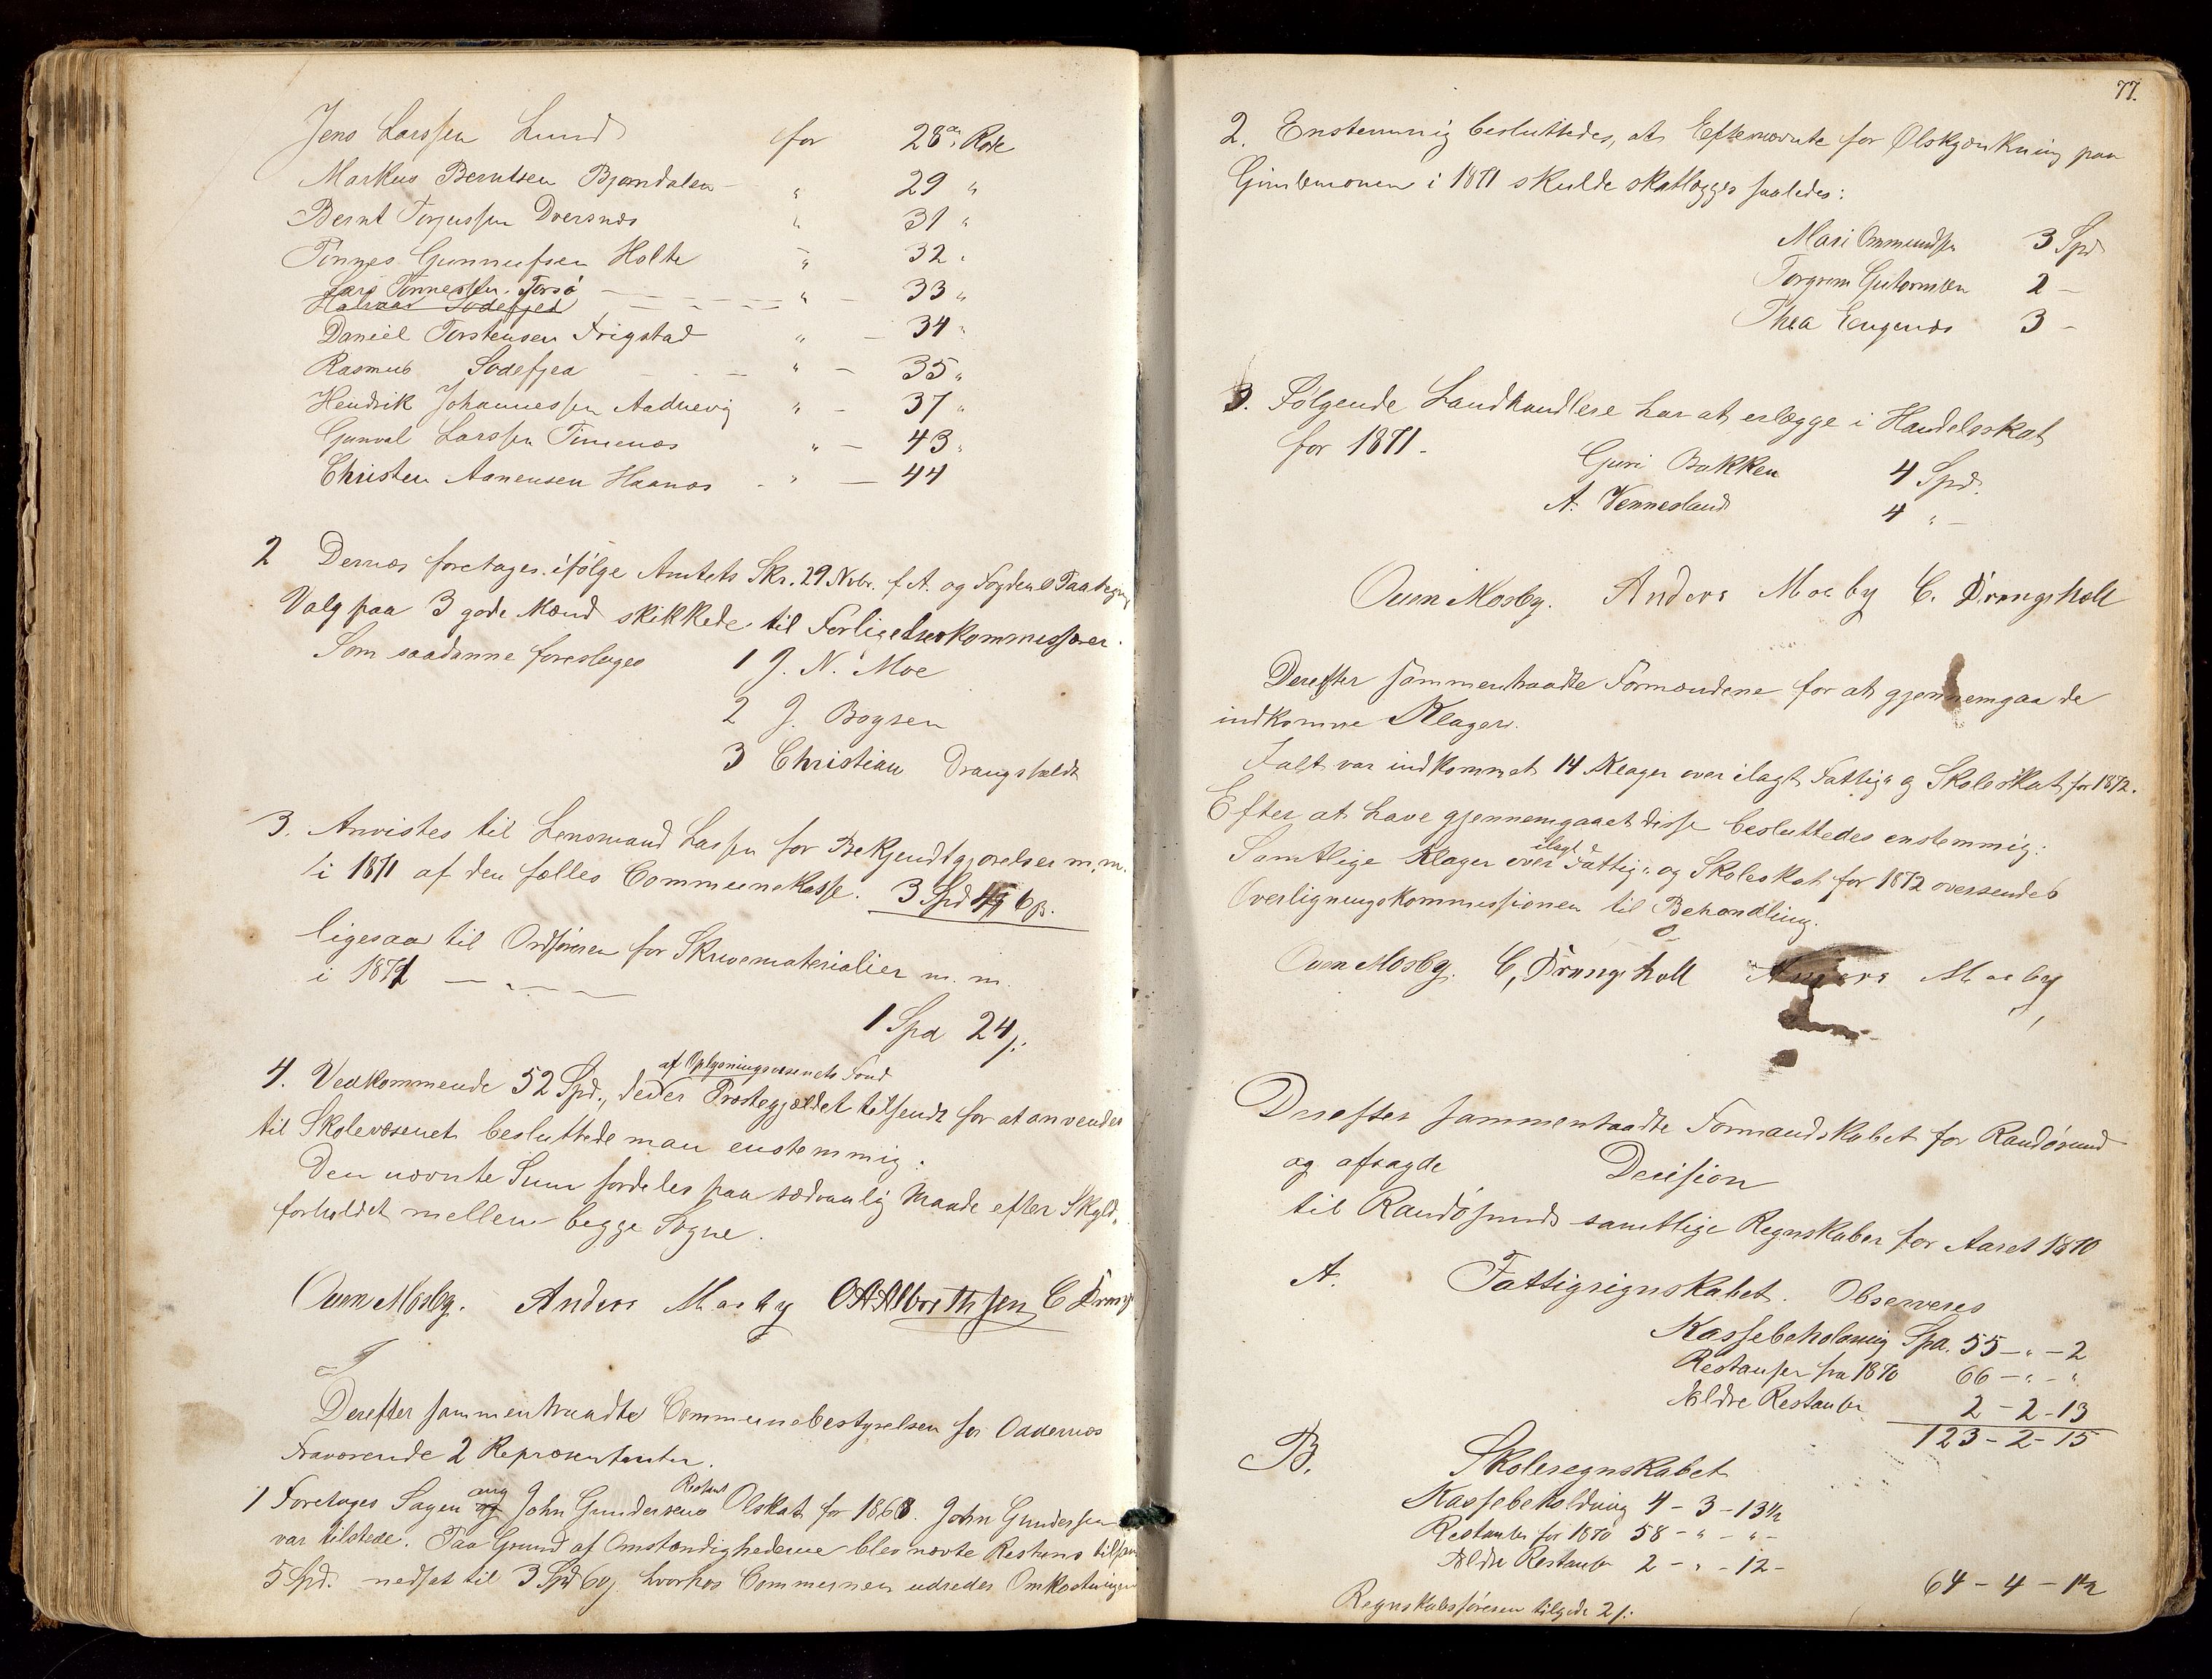 Jens Larssen Lund for 28de Rode
Markus Berntsen Bjændalen – " 29 "
Bernt Torjussen Dversnæs " 31 "
Tønnes Gunnufsen Holte " 32 "
Lars Tønnessen Torsø " – 33 "
Halvaar Sodefjed
Daniel Torstensen Frigstad " – 34 "
Rasmus Sodefjed " – 35 "
Hendrik Johannessen Aadnevig " – 37 "
Gunval Larssen Timenæs " – 43 "
Christen Aanensen Haanæs " – 44
2 Dernæs foretoges ifølge Amtets Skr. 29 Novbr. f. A. og Fogdens Paategn
Valg paa 3 gode Mænd skikkede til Forligelseskommissærer.
Som saadanne foresloges 1 J. N. Moe
2 J. Bogsen
3 Christian Drangsholdt
3. Anvistes til Lensmand Lassen for Bekjendtgjørelser m. m.
i 1871 af den fælles Communekasse. 3 Spd 6 β.
ligesaa til Ordføreren for Skrivematerialier m. m.
i 1871 — " —
1 Spd 24 β
af Oplysningsvæsenets Fond
4. Vedkommende 52 Spd., der er Præstegjældet tilsendt for at anvendes
til Skolevæsenet besluttede man enstemmig:
Den nævnte Sum fordeles paa sædvanlig Maade efter Skyld-
forholdet mellem begge Sogne.
Ouen Mosby. Anders Mosby O A Albrethsen C Drang
Derefter sammentraadte Communebestyrelsen for Oddernæs
Fraværende 2 Repræsentanter.
1 Foretoges Sagen ang John Gundersens Restant Ølskat for 1868. John Gundersen
var tilstede. Paa Grund af Omstændighederne blev nævte Restans tilsam
5 Spd. nedsat til 3 Spd 60 β. hvorhos Communen udreder Omkostningen
77.
2. Enstemmig besluttedes, at Efternævnte for Ølskjænkning paa
Gimlemoen i 1871 skulde skatlægges saaledes:
Mari Ommundsen 3 Spd
Torgrim Gutormsen 2 –
Thea Eugenæs 3 –
3. Følgende Landhandlere har at erlægge i Handelsskat
for 1871 –
Guri Bakken 4 Spd.
A. Vennesland 4 " –
Ouen Mosby. Anders Mosby C. Drangsholt
Derefter sammentraadte Formændene for at gjennemgaa de
indkomne Klager.
Ialt var indkommet 14 Klager over ilagt Fattig- og Skoleskat for 1872.
Efter at have gjennemgaaet disse besluttedes enstemmig:
Samtlige Klager over ilagt Fattig- og Skoleskat for 1872 oversendes
Overligningskommissionen til Behandling.
Ouen Mosby. C, Drangsholt Anders Mosby
Derefter sammentraadte Formandskabet for Randøsund
og afsagde Decision
til Randøsunds samtlige Regnskaber for Aaret 1870
A. Fattigregnskabet. Observeres
Kassebeholdning Spd. 55 – " – 2
Restanser fra 1870 66 – " – "
Ældre Restanser 2 – 2 – 13
123 – 2 – 15
B. Skoleregnskabet
Kassebeholdning 4 – 3 – 13½
Restanser for 1870 58 – " – " –
Ældre Restanser 2 – " – 12 –
64 – 4 – 1½
Regnskabsføreren tilgode 2 β.